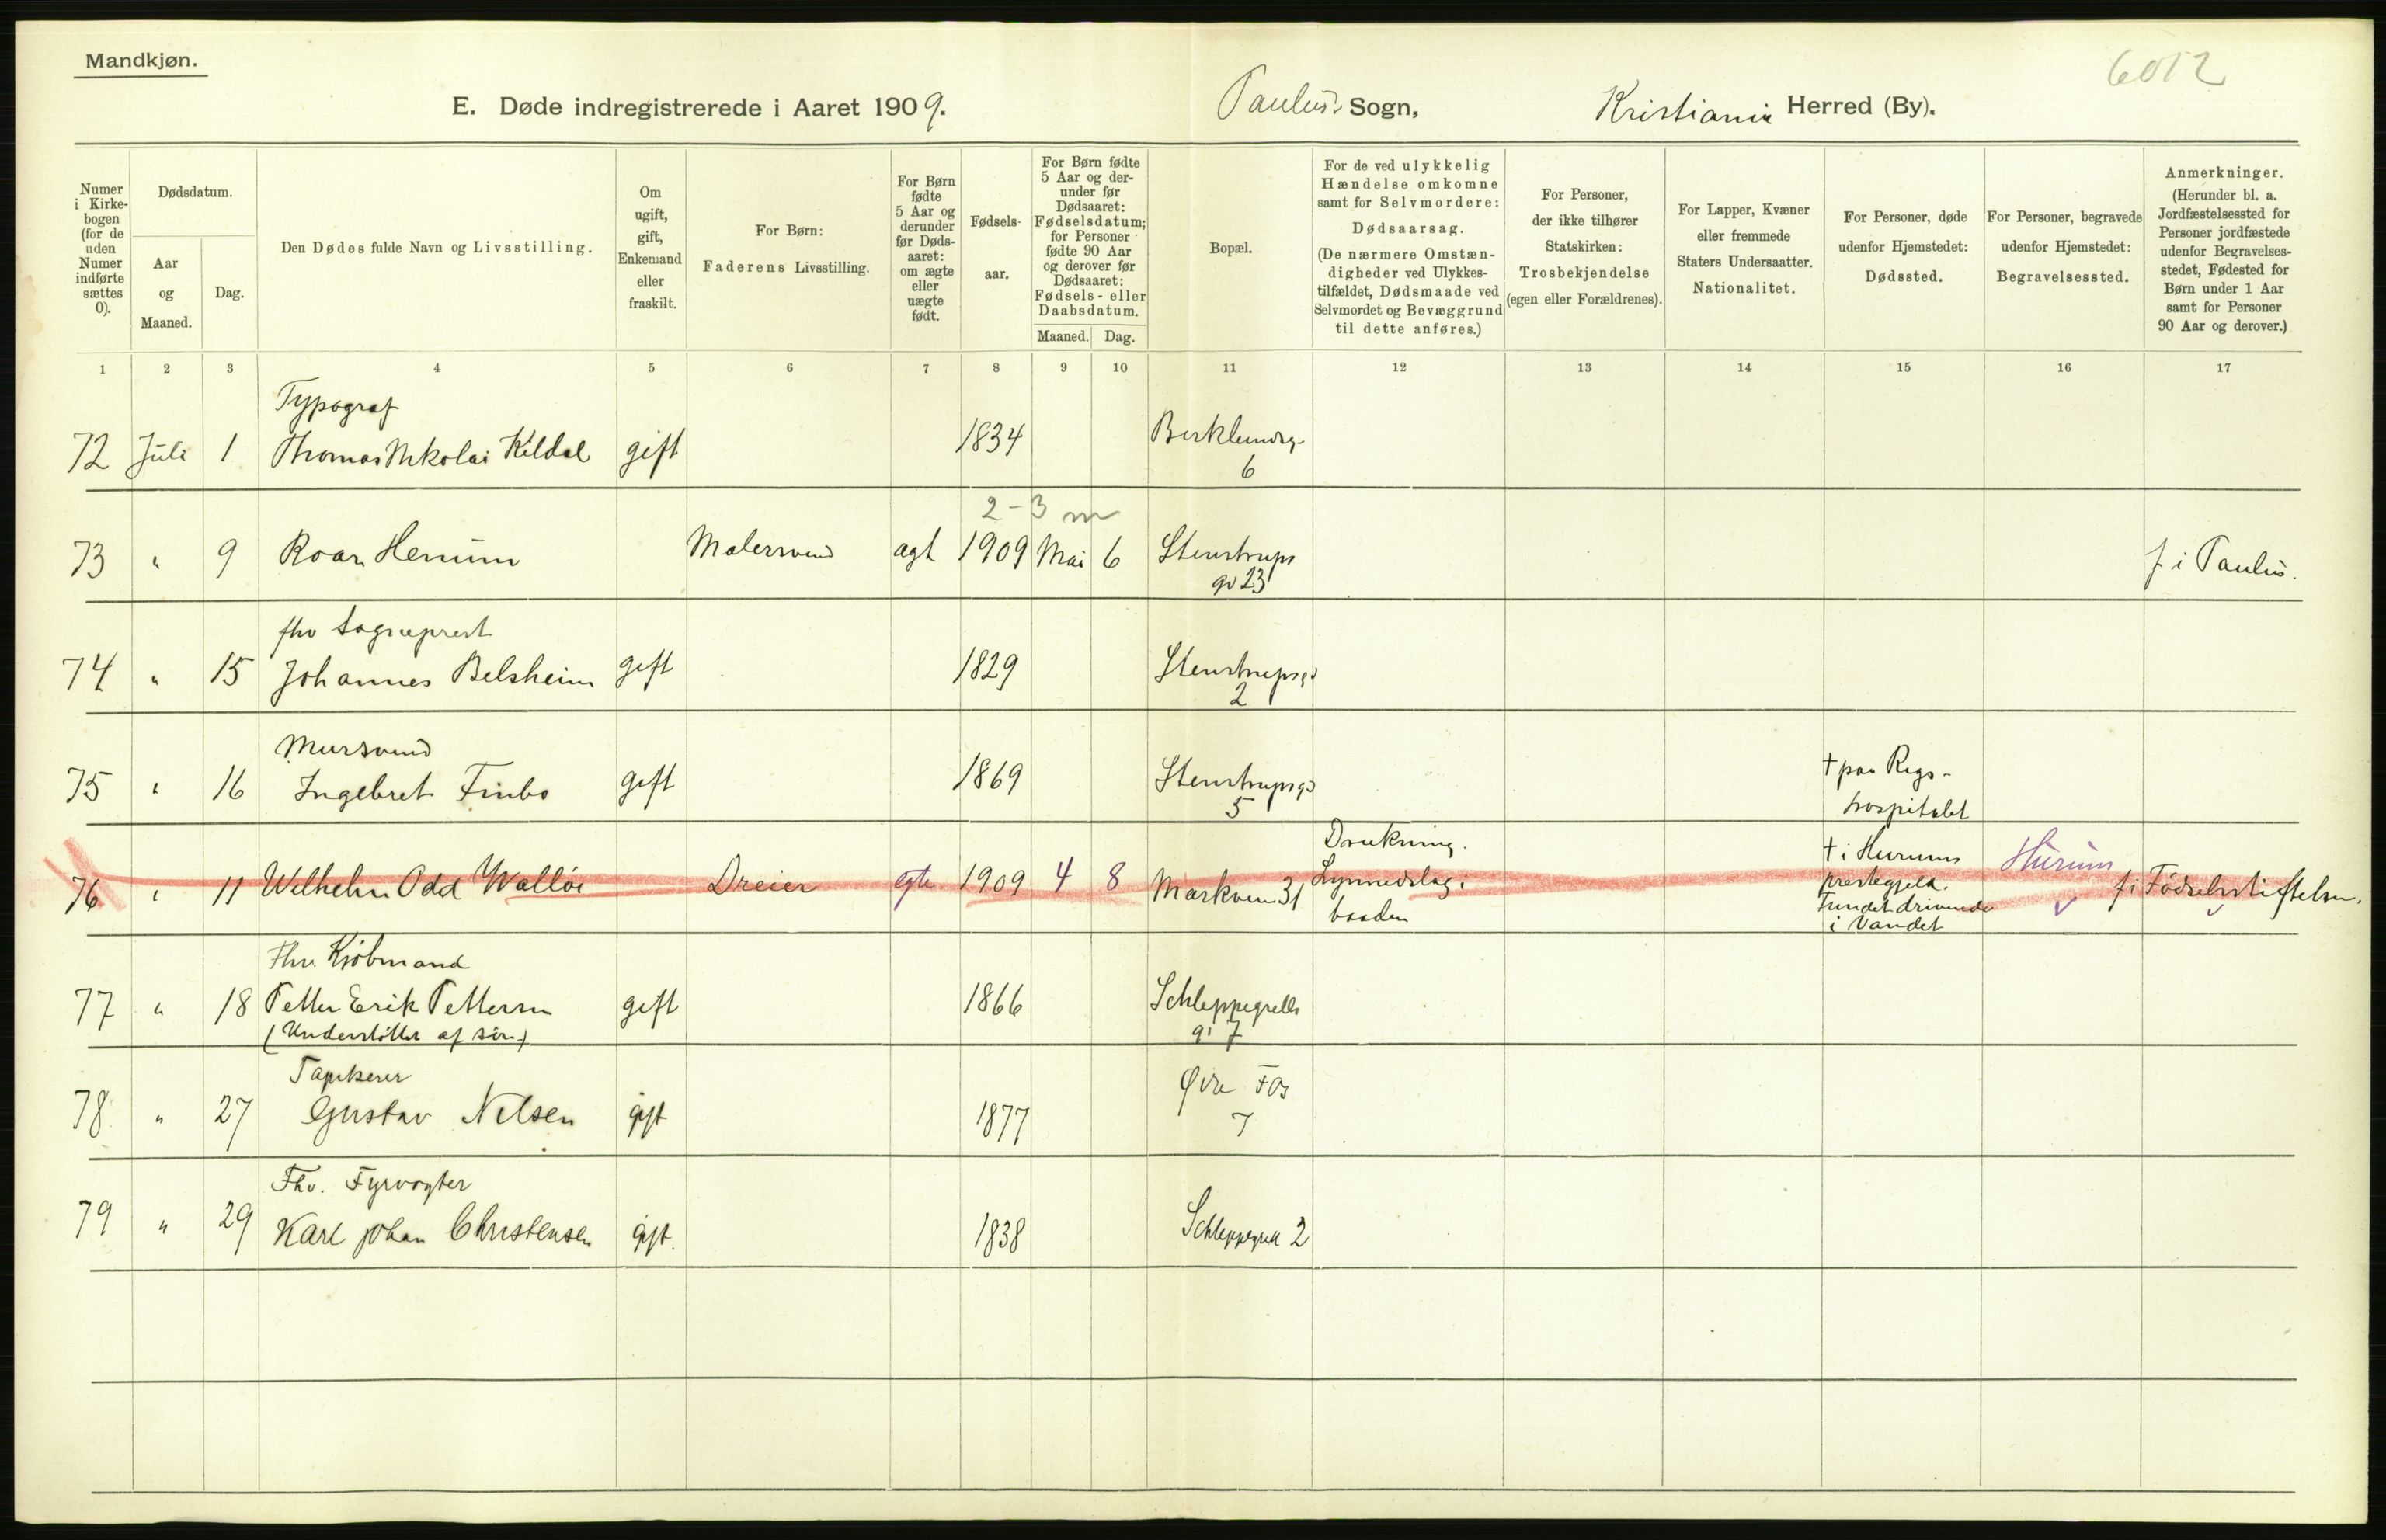 Mandkjøn.
6012
E. Døde indregistrerede i Aaret 1909. Paulus Sogn, Kristiania Herred (By).
Numer i Kirke-bogen (for de uden Numer indførte sættes 0).
Dødsdatum.
Aar og Maaned.
Dag.
Den Dødes fulde Navn og Livsstilling.
Om ugift, gift, Enkemand eller fraskilt.
For Børn: Faderens Livsstilling.
For Børn fødte 5 Aar og derunder før Døds-aaret: om ægte eller uægte født.
Fødsels-aar.
For Børn fødte 5 Aar og der-under før Dødsaaret: Fødselsdatum; for Personer fødte 90 Aar og derover før Dødsaaret: Fødsels- eller Daabsdatum.
Maaned. Dag.
Bopæl.
For de ved ulykkelig Hændelse omkomne samt for Selvmordere: Dødsaarsag. (De nærmere Omstæn-digheder ved Ulykkes-tilfældet, Dødsmaade ved Selvmordet og Bevæggrund til dette anføres.)
For Personer, der ikke tilhører Statskirken: Trosbekjendelse (egen eller Forældrenes).
For Lapper, Kvæner eller fremmede Staters Undersaatter. Nationalitet.
For Personer, døde udenfor Hjemstedet: Dødssted.
For Personer, begravede udenfor Hjemstedet: Begravelsessted.
Anmerkninger. (Herunder bl. a. Jordfæstelsessted for Personer jordfæstede udenfor Begravelses-stedet, Fødested for Børn under 1 Aar samt for Personer 90 Aar og derover.)
1 2 3 4 5 6 7 8 9 10 11 12 13 14 15 16 17
Typograf
72 Juli 1 Thomas Nikolai Kildal gift 1834
6
2-3 m
73 " 9 Roar Henum Malersvend ægt 1909 Mai 6 Stenstrups f i Paulus.
gd 23
fhv Sogneprest
74 " 15 Johannes Belsheim gift 1829 Stenstrupsgd
2
Mursvend
75 " 16 Ingebret Finbo gift 1869 Stenstrupsgd † paa Rigs-
5 hospitalet
Drukning. † i Hurums Hurum
76 " 11 Wilhelm Odd Walløe Dreier ægte 1909 4 8 Markvein 31 Lynnedslag i prestegjeld. f i Fødselsstiftelsen.
baaden Fundet drivende
i Vandet
Fhv. Kjøbmand
77 " 18 Petter Erik Pettersen gift 1866 Schleppegrells
(Understøttet af søn) gd 7
Tapetserer Øvre Fos
78 " 27 Gustav Nilsen gift 1877 7
Fhv. Fyrvogter
79 " 29 Karl Johan Christensen gift. 1838 Schleppegrell 2